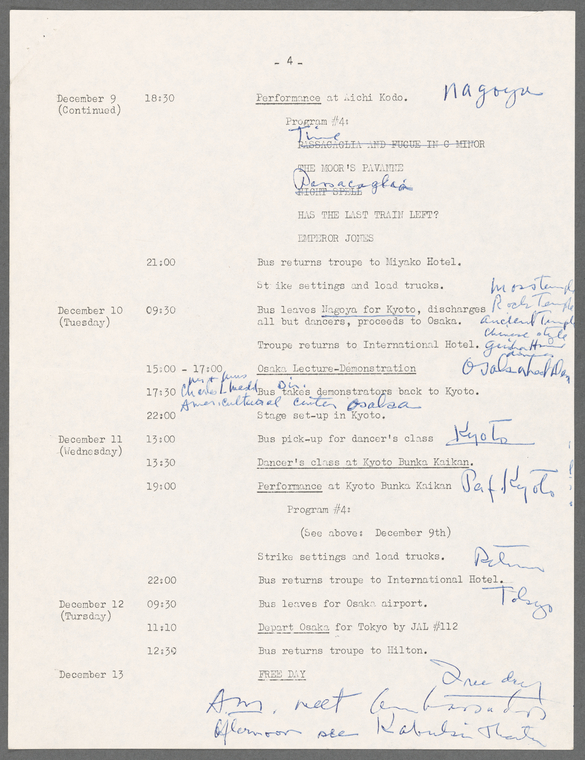 - 4 -
December 9 18:30 Performance at Aichi Kodo. Nagoya
(Continued)
Program #4:
Time
PASSACAGLIA AND FUGUE IN C MINOR
THE MOOR'S PAVANNE
Passacaglia
NIGHT SPELL
HAS THE LAST TRAIN LEFT?
EMPEROR JONES
21:00 Bus returns troupe to Miyako Hotel.
Strike settings and load trucks.
Moss temple
Rock temple
December 10 09:30 Bus leaves Nagoya for Kyoto, discharges
(Tuesday) all but dancers, proceeds to Osaka. ancient temple
Chinese style
Troupe returns to International Hotel. geisha
dances
15:00 - 17:00 Osaka Lecture-Demonstration Osaka
Mr + Mrs
Charles Dir.
17:30 Bus takes demonstrators back to Kyoto.
American cultural center Osaka
22:00 Stage set-up in Kyoto.
December 11 13:00 Bus pick-up for dancer's class Kyoto
(Wednesday)
13:30 Dancer's class at Kyoto Bunka Kaikan.
19:00 Performance at Kyoto Bunka Kaikan Perf. Kyoto
Program #4:
(See above: December 9th)
Strike settings and load trucks. Return
22:00 Bus returns troupe to International Hotel.
Tokyo
December 12 09:30 Bus leaves for Osaka airport.
(Tursday)
11:10 Depart Osaka for Tokyo by JAL #112
12:30 Bus returns troupe to Hilton.
December 13 FREE DAY Free day
A.M. meet Ambassador
afternoon see Kabuki